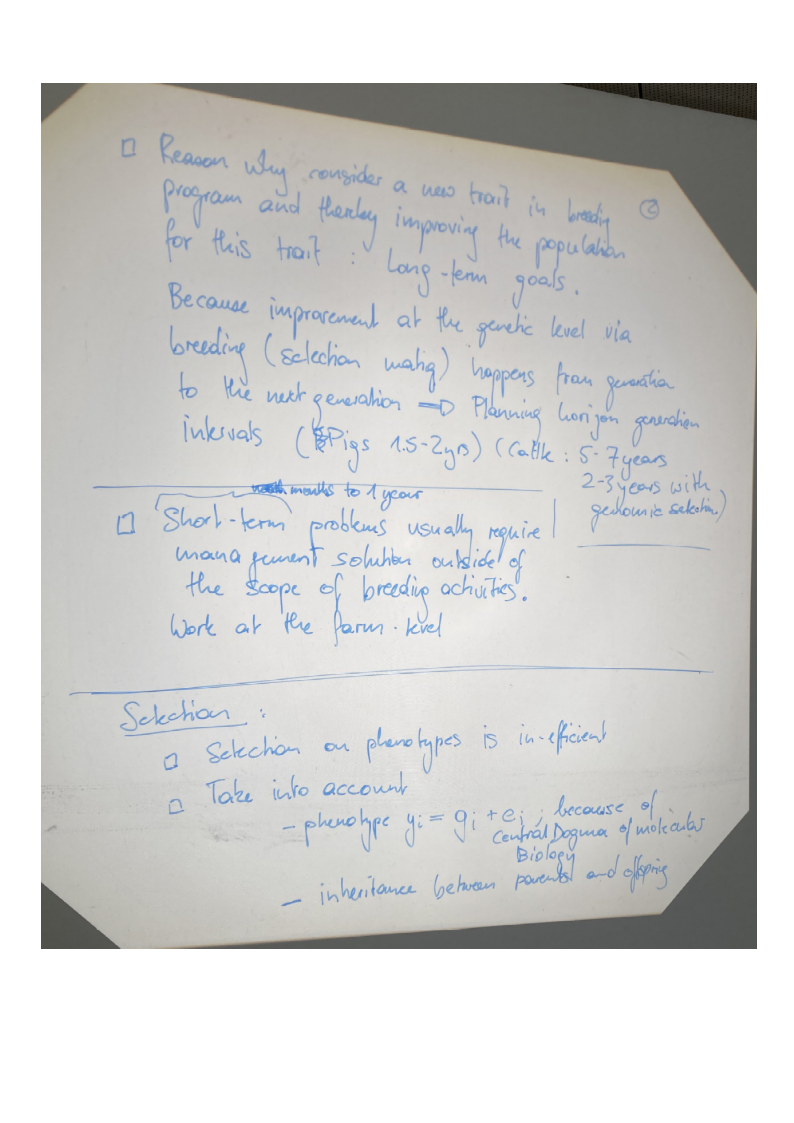 □ Reason why consider a new trait in breedig
②
program and thereby improving the population
for this trait : Long-term goals.
Because improvement at the genetic level via
breeding (selection matig) happens from generation
to the next generation ⇒ Planning horizon generation
intervals (Pigs 1.5-2yrs) (Cattle : 5-7years
2-3years with
genomic selection)
months to 1 year
□ Short-term problems usually require
management solution outside of
the scope of breeding activities.
Work at the farm-level
Selection :
□ Selection on phenotypes is in-efficient
□ Take into account
- phenotype yi = gi + ei , because of
Central Dogma of molecular
Biology
- inheritance between parents and offspring